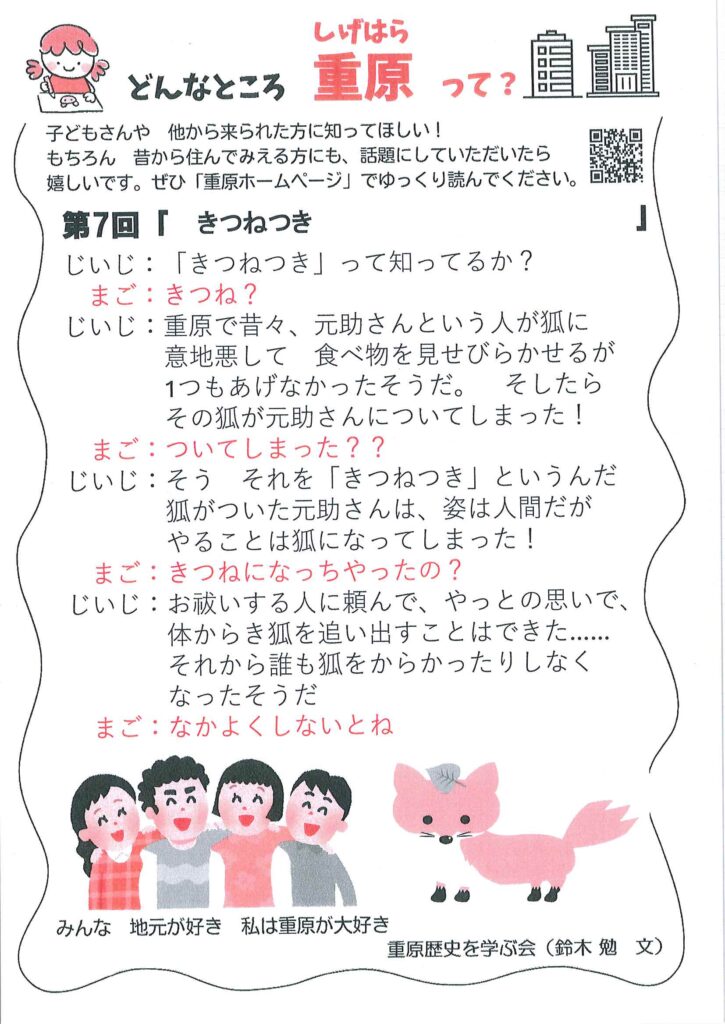 しげはら
どんなところ 重原 って？
子どもさんや　他から来られた方に知ってほしい！
もちろん　昔から住んでみえる方にも、話題にしていただいたら
嬉しいです。ぜひ「重原ホームページ」でゆっくり読んでください。
第7回「　きつねつき　」
じいじ：「きつねつき」って知ってるか？
まご：きつね？
じいじ：重原で昔々、元助さんという人が狐に
意地悪して　食べ物を見せびらかせるが
1つもあげなかったそうだ。　そしたら
その狐が元助さんについてしまった！
まご：ついてしまった？？
じいじ：そう　それを「きつねつき」というんだ
狐がついた元助さんは、姿は人間だが
やることは狐になってしまった！
まご：きつねになっちやったの？
じいじ：お祓いする人に頼んで、やっとの思いで、
体からき狐を追い出すことはできた……
それから誰も狐をからかったりしなく
なったそうだ
まご：なかよくしないとね
みんな　地元が好き　私は重原が大好き
重原歴史を学ぶ会（鈴木 勉　文）